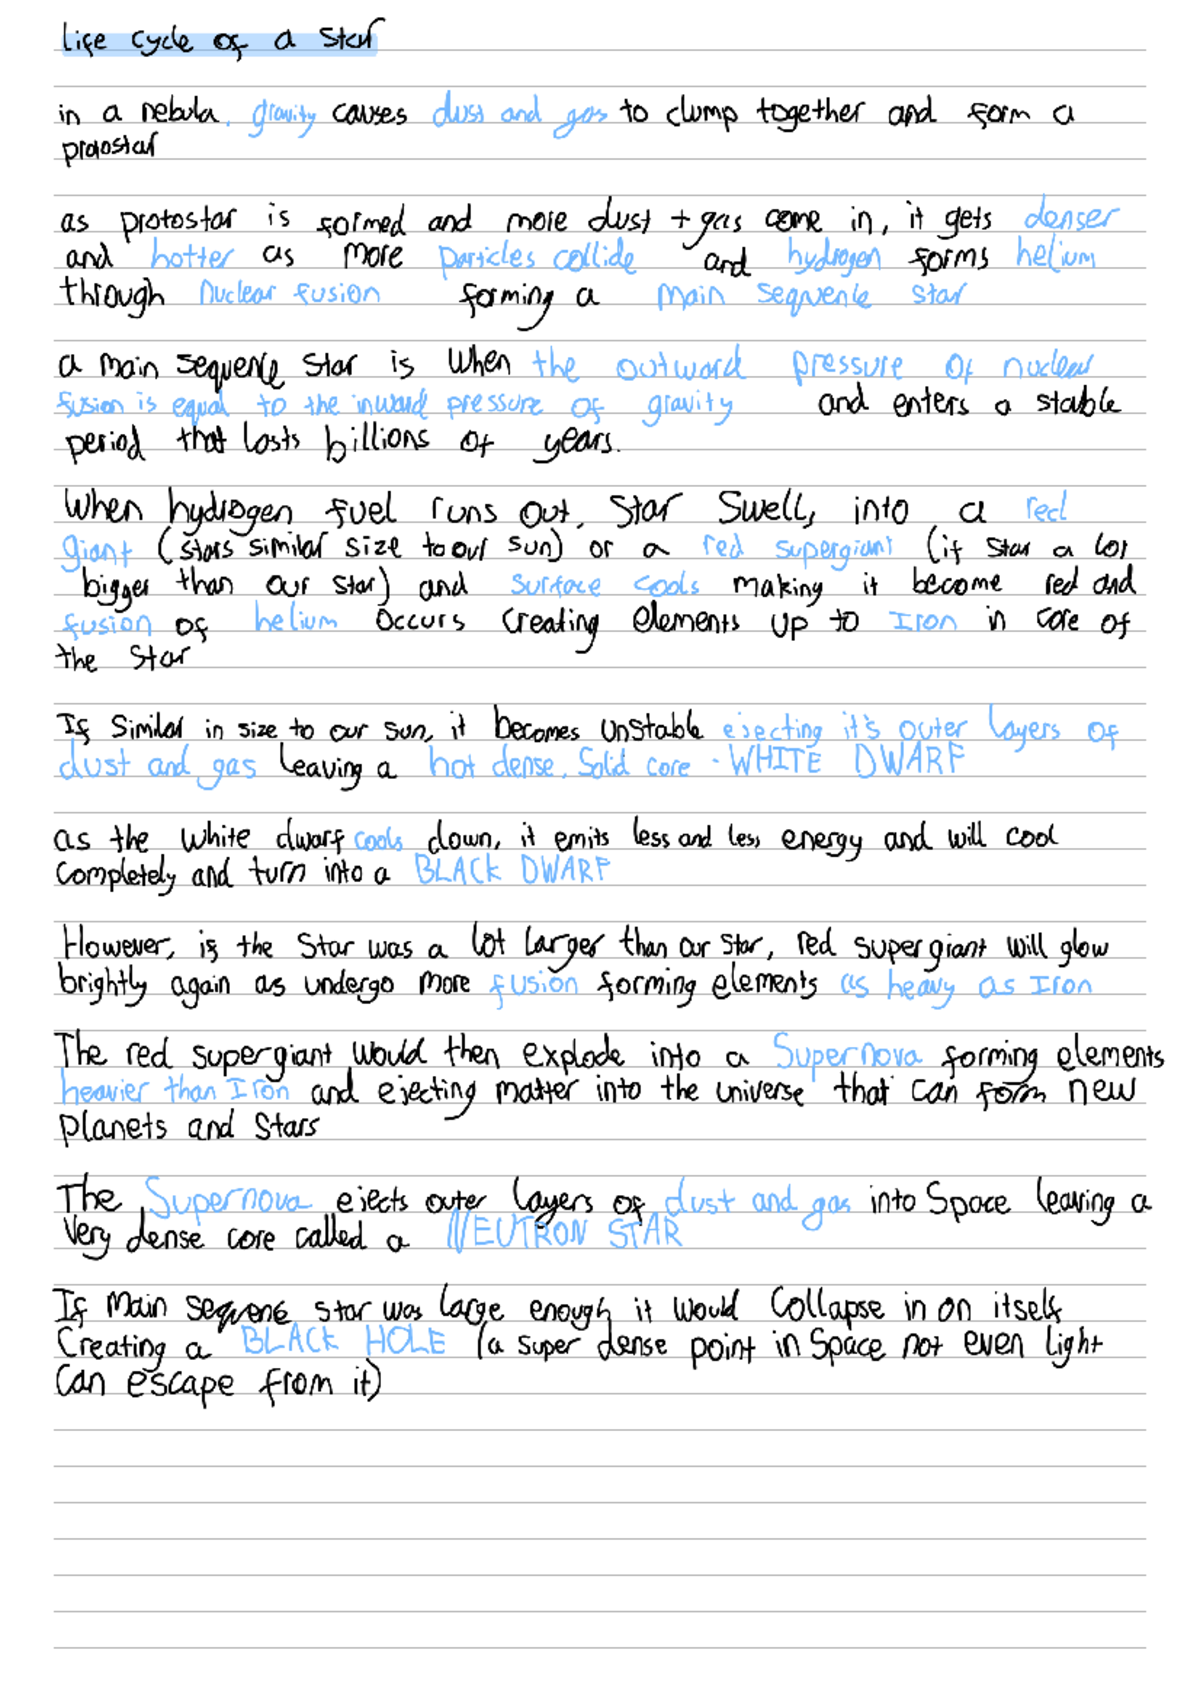 life cycle of a star
in a nebula, gravity causes dust and gas to clump together and form a
protostar
as protostar is formed and more dust + gas come in, it gets denser
and hotter as more particles collide and hydrogen forms helium
through nuclear fusion forming a main sequence star
a main sequence star is when the outward pressure of nuclear
fusion is equal to the inward pressure of gravity and enters a stable
period that lasts billions of years.
When hydrogen fuel runs out, star swells into a red
giant (stars similar size to our sun) or a red supergiant (if star a lot
bigger than our star) and surface cools making it become red and
fusion of helium occurs creating elements up to Iron in core of
the star
If similar in size to our sun, it becomes unstable ejecting it's outer layers of
dust and gas leaving a hot dense, solid core - WHITE DWARF
as the white dwarf cools down, it emits less and less energy and will cool
completely and turn into a BLACK DWARF
However, if the star was a lot larger than our star, red supergiant will glow
brightly again as undergo more fusion forming elements as heavy as Iron
The red supergiant would then explode into a Supernova forming elements
heavier than Iron and ejecting matter into the universe that can form new
planets and stars
The Supernova ejects outer layers of dust and gas into space leaving a
very dense core called a NEUTRON STAR
If main sequence star was large enough it would collapse in on itself
creating a BLACK HOLE (a super dense point in space not even light
can escape from it)